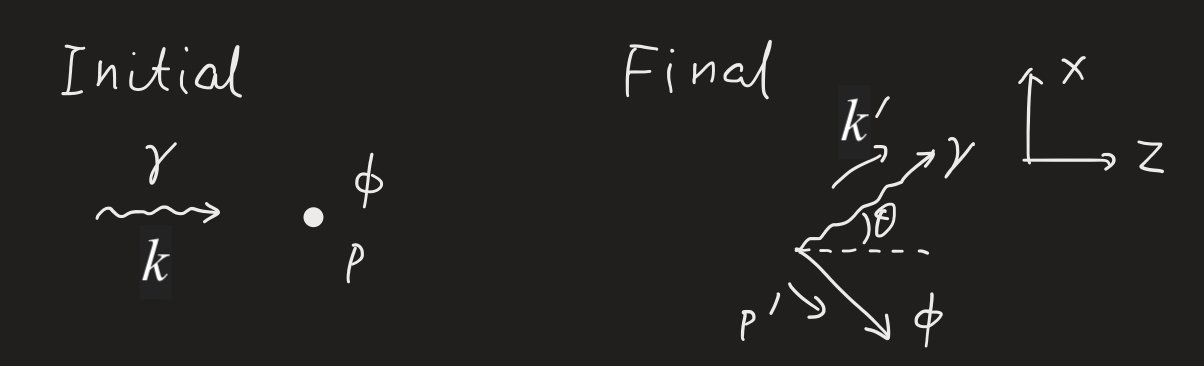 Initial
γ
k
ϕ
p
Final
k′
γ
θ
p′
ϕ
x
z